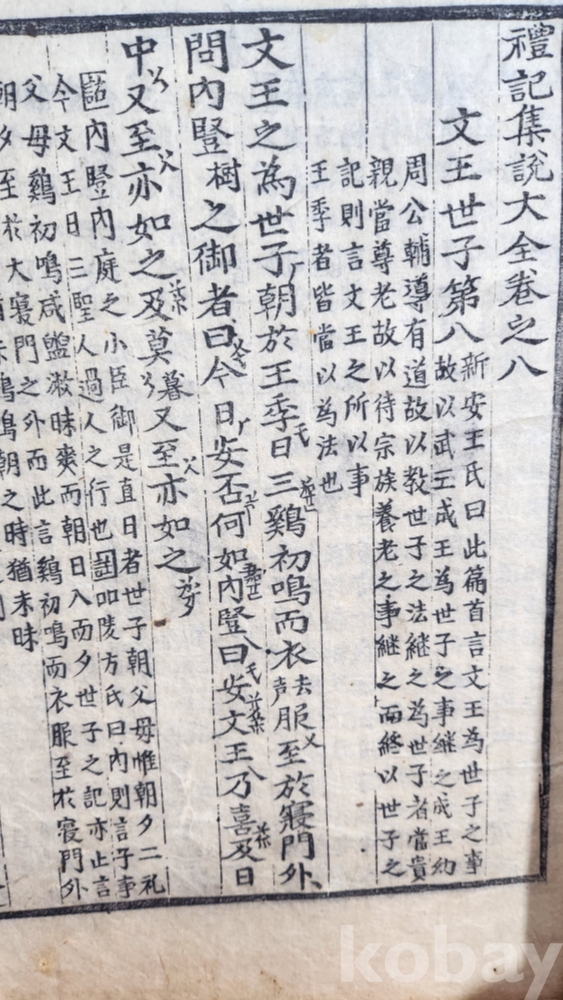 禮記集說大全卷之八
文王世子第八
新安王氏曰此篇首言文王為世子之事
故以武王成王為世子之事継之成王幼
周公輔導有道故以教世子之法継之為世子者當貴
親當尊老故以待宗族養老之事継之而終以世子之
記則言文王之所以事
王季者皆當以為法也
文王之為世子朝於王季日三鷄初鳴而衣去聲服至於寢門外
問內豎樹之御者曰今日安否何如內豎曰安文王乃喜及日
中又至亦如之及莫暮又至亦如之
註內豎內庭之小臣御是直日者世子朝父母惟朝夕二礼
今文王日三聖人過人之行也
陵方氏曰內則言子事
父母鷄初鳴咸盥漱昧爽而朝日入而夕世子之記亦止言
朝夕至於大寢門之外而此言鷄初鳴而衣服至於寢門外
鳴朝之時猶未昧
kobay